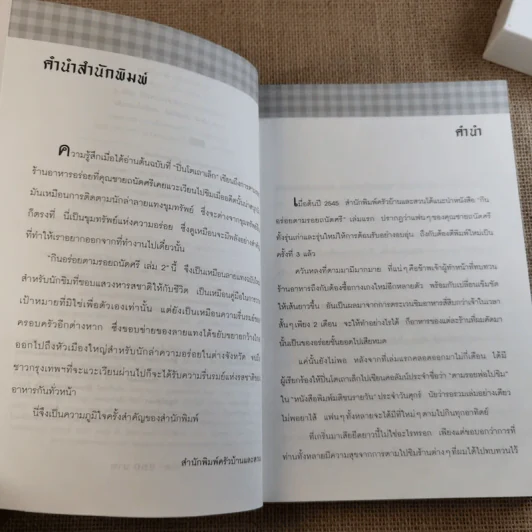 คำนำสำนักพิมพ์
ความรู้สึกเมื่อได้อ่านต้นฉบับที่ "ปิ่นโตเถาเล็ก" เขียนถึงการตาม
ร้านอาหารอร่อยที่คุณชายถนัดศรีเคยแวะเวียนไปชิมเมื่ออดีตนั้น
มันเหมือนการติดตามนักล่าลายแทงขุมทรัพย์ ซึ่งจะต่างจาก
ก็ตรงที่ นี่เป็นขุมทรัพย์แห่งความอร่อย ซึ่งดูเหมือนจะมีพลังอย่าง
ที่ทำให้เราอยากออกจากที่ทำงานไปเดี๋ยวนั้น
"กินอร่อยตามรอยถนัดศรี เล่ม 2" นี้ จึงเป็นเหมือนลายแทง
สำหรับนักชิมที่ชอบแสวงหารสชาติให้กับชีวิต เป็นเหมือนคู่มือในการ
เป้าหมายที่มิใช่เพื่อตัวเองเท่านั้น แต่ยังเป็นเหมือนความรื่นรมย์
ครอบครัวอีกต่างหาก ซึ่งขอบข่ายของลายแทงได้ขยับขยายกว้าง
ออกไปถึงหัวเมืองใหญ่สำหรับนักล่าความอร่อยในต่างจังหวัด
ชาวกรุงเทพฯที่จะแวะเวียนผ่านไปก็จะได้รับความรื่นรมย์แห่งรสชาติ
อาหารกันทั่วหน้า
นี่จึงเป็นความภูมิใจครั้งสำคัญของสำนักพิมพ์
สำนักพิมพ์ครัวบ้านและสวน
คำนำ
เมื่อต้นปี 2545 สำนักพิมพ์ครัวบ้านและสวนได้แนะนำหนังสือ "กิน
อร่อยตามรอยถนัดศรี" เล่มแรก ปรากฏว่าแฟนๆของคุณชายถนัดศรี
ทั้งรุ่นเก่าและรุ่นใหม่ให้การต้อนรับอย่างอบอุ่น ถึงกับต้องตีพิมพ์ใหม่เป็น
ครั้งที่ 3 แล้ว
ควันหลงที่ตามมามีมากมาย ที่แน่ๆคือข้าพเจ้าผู้ทำหน้าที่ทบทวน
ร้านอาหารมีอันต้องซื้อกางเกงใหม่อีกหลายตัว พร้อมกับเปลี่ยนเข็มขัด
ให้เส้นยาวขึ้น อันเป็นผลมาจากการตระเวนชิมอาหารสี่สิบกว่าเจ้าในเวลา
สั้นๆเพียง 2 เดือน จะให้ทำอย่างไรได้ ก็อาหารของแต่ละร้านที่ผมคัดมา
นั้นเป็นของอร่อยชั้นยอดไปเสียหมด
แค่นั้นยังไม่พอ หลังจากที่เล่มแรกคลอดออกมาไม่กี่เดือน ได้มี
ผู้เรียกร้องให้ปิ่นโตเถาเล็กไปเขียนคอลัมน์ประจำชื่อว่า "ตามรอยพ่อไปชิม"
ใน "หนังสือพิมพ์มติชนรายวัน" ประจำวันศุกร์ นัยว่ารอรวมเล่มอย่างเดียว
ไม่พอยาไส้ แฟนๆทั้งหลายจะได้มีที่ใหม่ๆตามไปกินทุกอาทิตย์
ที่เกริ่นมาเสียยืดยาวนี้ไม่ใช่อะไรหรอก เพียงแค่ขอบอกว่าการที่
ท่านทั้งหลายมีความสุขจากการตามไปชิมร้านต่างๆที่ผมได้ไปทบทวนไว้